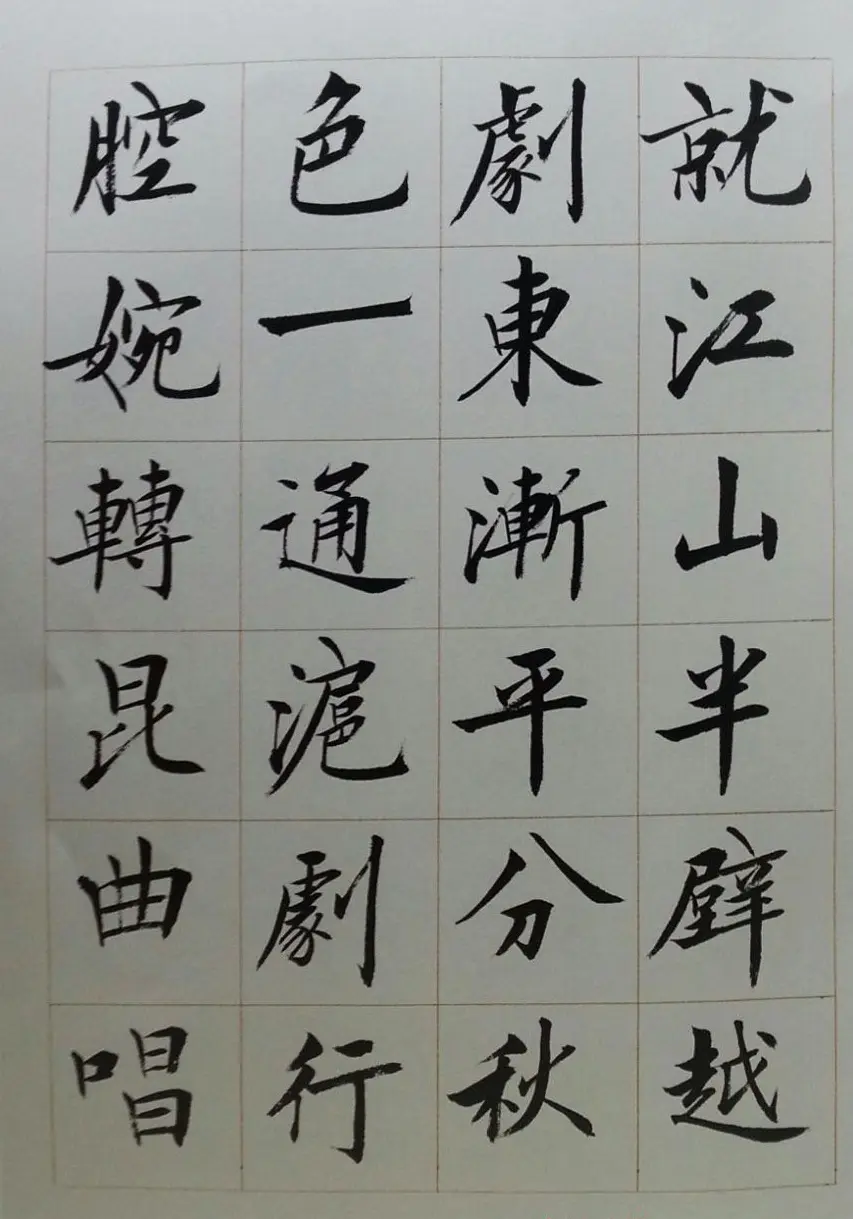 就江山半壁越
劇東漸平分秋
色一通滬劇行
腔婉轉昆曲唱